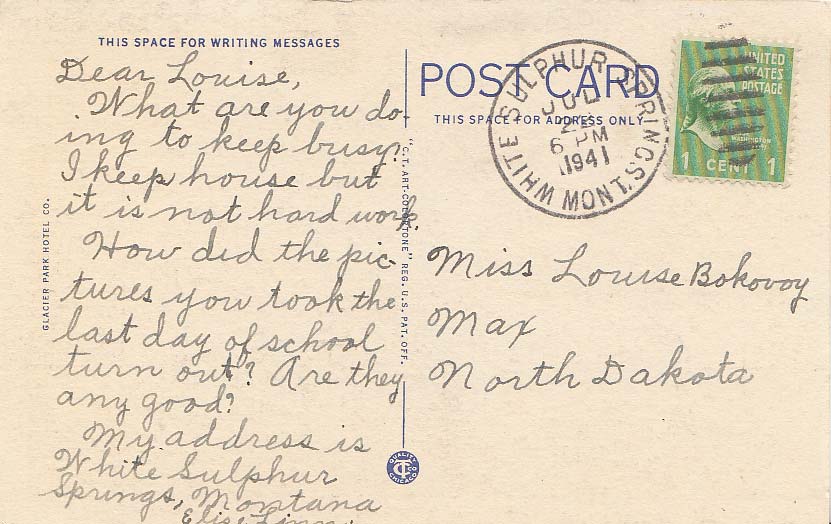 THIS SPACE FOR WRITING MESSAGES
Dear Louise,
What are you do-
ing to keep busy?
I keep house but
it is not hard work.
How did the pic-
tures you took the
last day of school
turn out? Are they
any good?
My address is
White Sulphur
Springs, Montana
GLACIER PARK HOTEL CO.
"C.T. ART-COLORTONE" REG. U.S. PAT. OFF.
QUALITY
CT CO
CHICAGO
POST CARD
THIS SPACE FOR ADDRESS ONLY
WHITE SULPHUR SPRINGS, MONT.
JUL
6 PM
1941
UNITED
STATES
POSTAGE
WASHINGTON
1 CENT 1
Miss Louise Bokovoy
Max
North Dakota